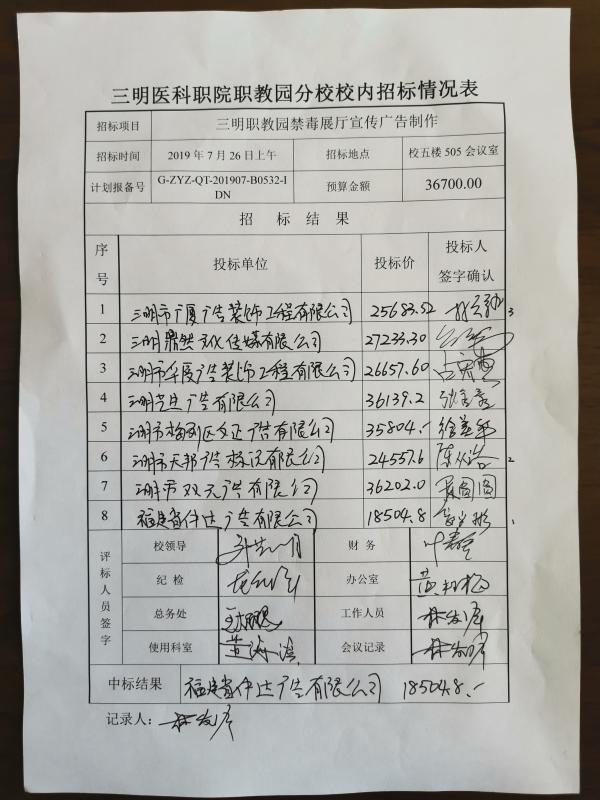 三明医科职院职教园分校校内招标情况表
招标项目 三明职教园禁毒展厅宣传广告制作
招标时间 2019年7月26日上午 招标地点 校五楼505会议室
计划报备号 G-ZYZ-QT-201907-B0532-I
DN 预算金额 36700.00
招 标 结 果
序号 投标单位 投标价 投标人
签字确认
1 三明市广厦广告装饰工程有限公司 25683.52 3
2 三明鼎然文化传媒有限公司 27233.30
3 三明市华厦广告装饰工程有限公司 26657.60
4 三明 广告有限公司 36139.2
5 三明市梅列区文正广告有限公司 35804.-
6 三明市天邦广告标识有限公司 24557.6 2
7 三明市双元广告有限公司 36202.0
8 福建省伟达广告有限公司 18504.8 1
评标人员签字
校领导 财务
纪检 办公室
总务处 工作人员
使用科室 会议记录
中标结果 福建省伟达广告有限公司 18504.8.-
记录人：